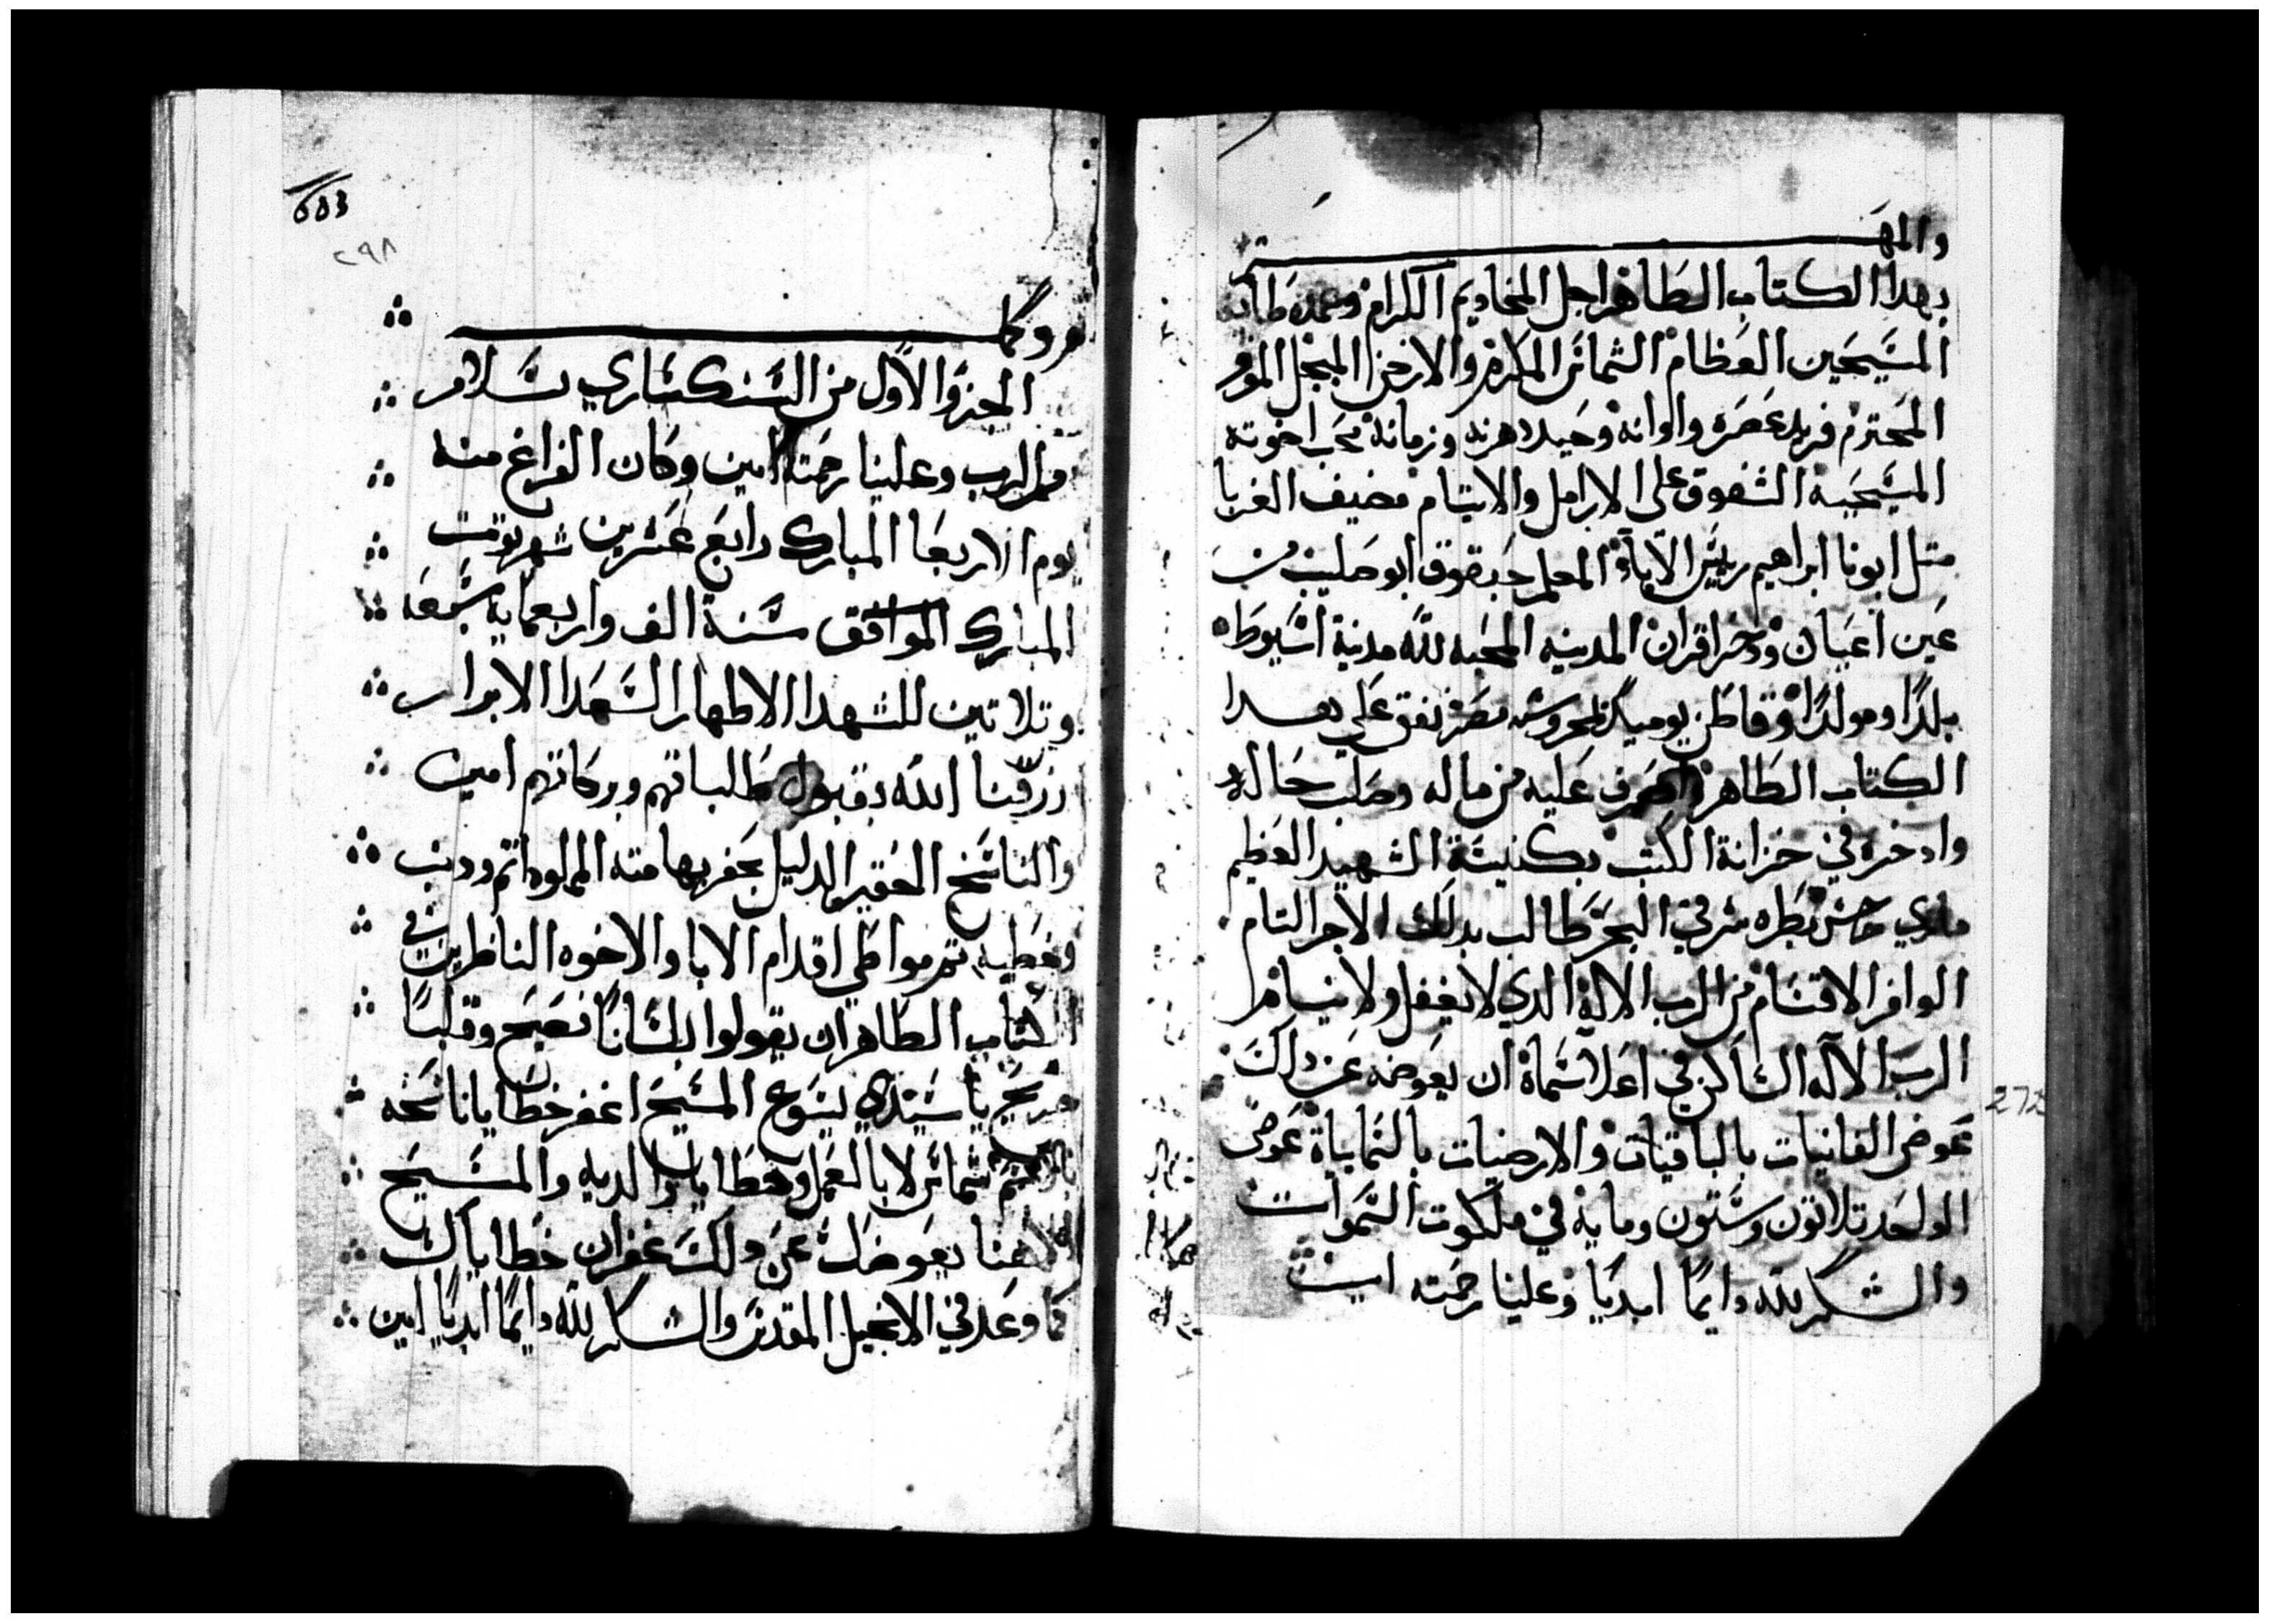 والمهتم
بهدا الكتاب الطاهر اجل المخاديم الكرام وعمدة طايفة
المسيحين العظام الشماس المكرم والارخن المبجل الموقر
المحترم فريد عصره واوانه وحيد دهره وزمانه محب اخوته
المسيحيه الشفوق على الارامل والايتام مضيف الغربا
متل ابونا ابراهيم رييس الاباء المعلم حبقوق ابو صليب من
عين اعيان اقران المدينه المحبه لله مدينة اسيوط
بلدًا ومولدًا وقاطن يوميد محروسة مصر نفق على هدا
الكتاب الطاهر وصرف عليه من ماله وصلب حاله
وادخره في خزانة الكتب بكنيسة الشهيد العظيم
ماري شرقي البحر طالب بدلك الاجر التام
الوافر الاقتسام من الرب الاله الدي لا يغفل ولا ينسا
الرب الاله الساكن في اعلا سماة ان يعوضه عن دلك
عوض الفانيات بالباقيات والارضيات بالسماياة عوض
الواحد تلاتون وستون وماية في ملكوت السموات
والشكر لله دايمًا ابديًا وعلينا رحمته امين
603
٢٩٨
272
الجزؤ الاول من السنكساري بسلام
من الرب وعلينا رحمته امين وكان الفراغ منه
يوم الاربعا المبارك رابع عشرين شهر توت
المبارك الموافق سنة الف واربعماية تسعه
وتلاتين للشهدا الاطهار السعدا الابرار
رزقنا الله بقبول طلباتهم وبركاتهم امين
والناسخ الحقير الدليل بحقر بهامته المملوه اتم ودنب
وخطيه تحت مواطي اقدام الابا والاخوه الناظرين في
الكتاب الطاهر ان يقولوا بلسانًا فصيح وقلبًا
يا سيدي يسوع المسيح اغفر خطايا ناسخه
بالاسم شماس لا بالعمل وخطايا والديه والمسيح
الاهنا يعوضك عن دلك غفران خطاياك
كما وعد في الانجيل المقدس والشكر لله دايمًا ابديًا امين